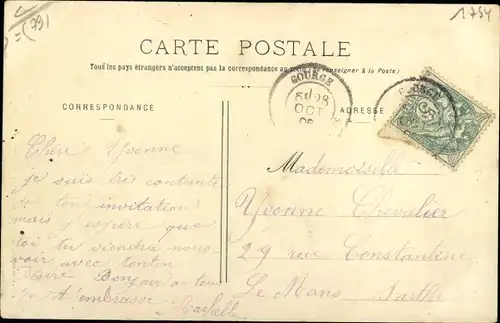 (79)
1754
CARTE POSTALE
Tous les pays étrangers n'acceptent pas la correspondance au (se renseigner à la Poste)
CORRESPONDANCE
GOURGÉ
OCT
ADRESSE
Chère Yvonne
je suis très contente
de ton invitation
mais j'espère que
toi tu viendra nous
voir avec tonton
Désiré Bonjour a tous
je t'embrasse
Rachelle
Mademoiselle
Yvonne Chevalier
29 rue Constantine
Le Mans Sarthe